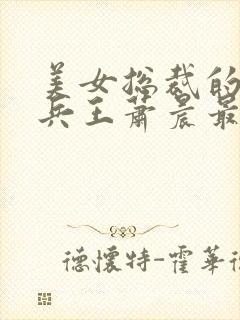 美女总裁的
兵王萧晨最
德怀特-霍华德